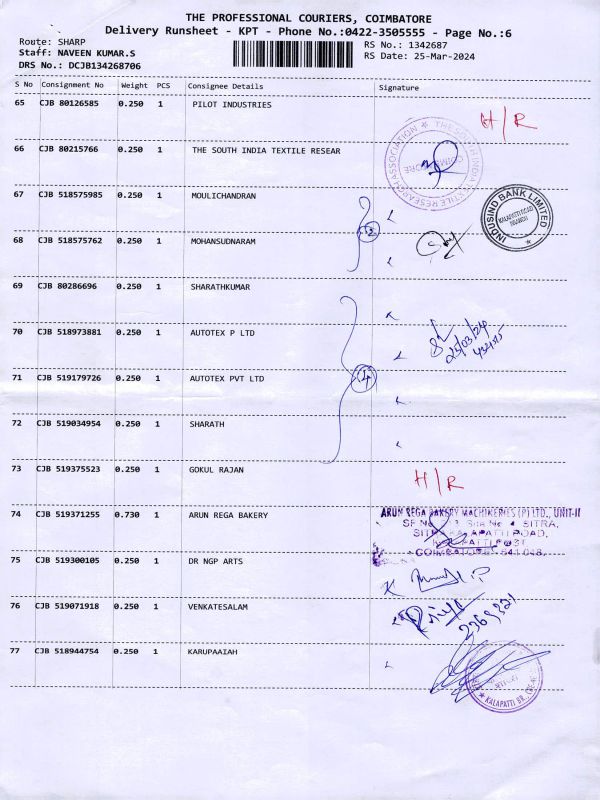 THE PROFESSIONAL COURIERS, COIMBATORE
Delivery Runsheet - KPT - Phone No.:0422-3505555 - Page No.:6
Route: SHARP
Staff: NAVEEN KUMAR.S
DRS No.: DCJB134268706
RS No.: 1342687
RS Date: 25-Mar-2024
S No Consignment No Weight PCS Consignee Details Signature
65 CJB 80126585 0.250 1 PILOT INDUSTRIES H/R
66 CJB 80215766 0.250 1 THE SOUTH INDIA TEXTILE RESEAR
THE SOUTH INDIA TEXTILE RESEARCH ASSOCIATION ★
COIMBATORE
67 CJB 518575985 0.250 1 MOULICHANDRAN
INDUSIND BANK LIMITED
KALAPATTI ROAD
BRANCH
2
68 CJB 518575762 0.250 1 MOHANSUDNARAM
69 CJB 80286696 0.250 1 SHARATHKUMAR
70 CJB 518973881 0.250 1 AUTOTEX P LTD
25/03/24
71 CJB 519179726 0.250 1 AUTOTEX PVT LTD
4
72 CJB 519034954 0.250 1 SHARATH
73 CJB 519375523 0.250 1 GOKUL RAJAN H/R
74 CJB 519371255 0.730 1 ARUN REGA BAKERY
ARUN REGA BAKERY MACHINERIES (P) LTD., UNIT-II
SF No. Site No 4 SITRA,
SITRA KALAPATTI ROAD,
KALAPATTI POST
COIMBATORE - 641 048.
75 CJB 519300105 0.250 1 DR NGP ARTS
76 CJB 519071918 0.250 1 VENKATESALAM
77 CJB 518944754 0.250 1 KARUPAAIAH
★ KALAPATTI BR.,